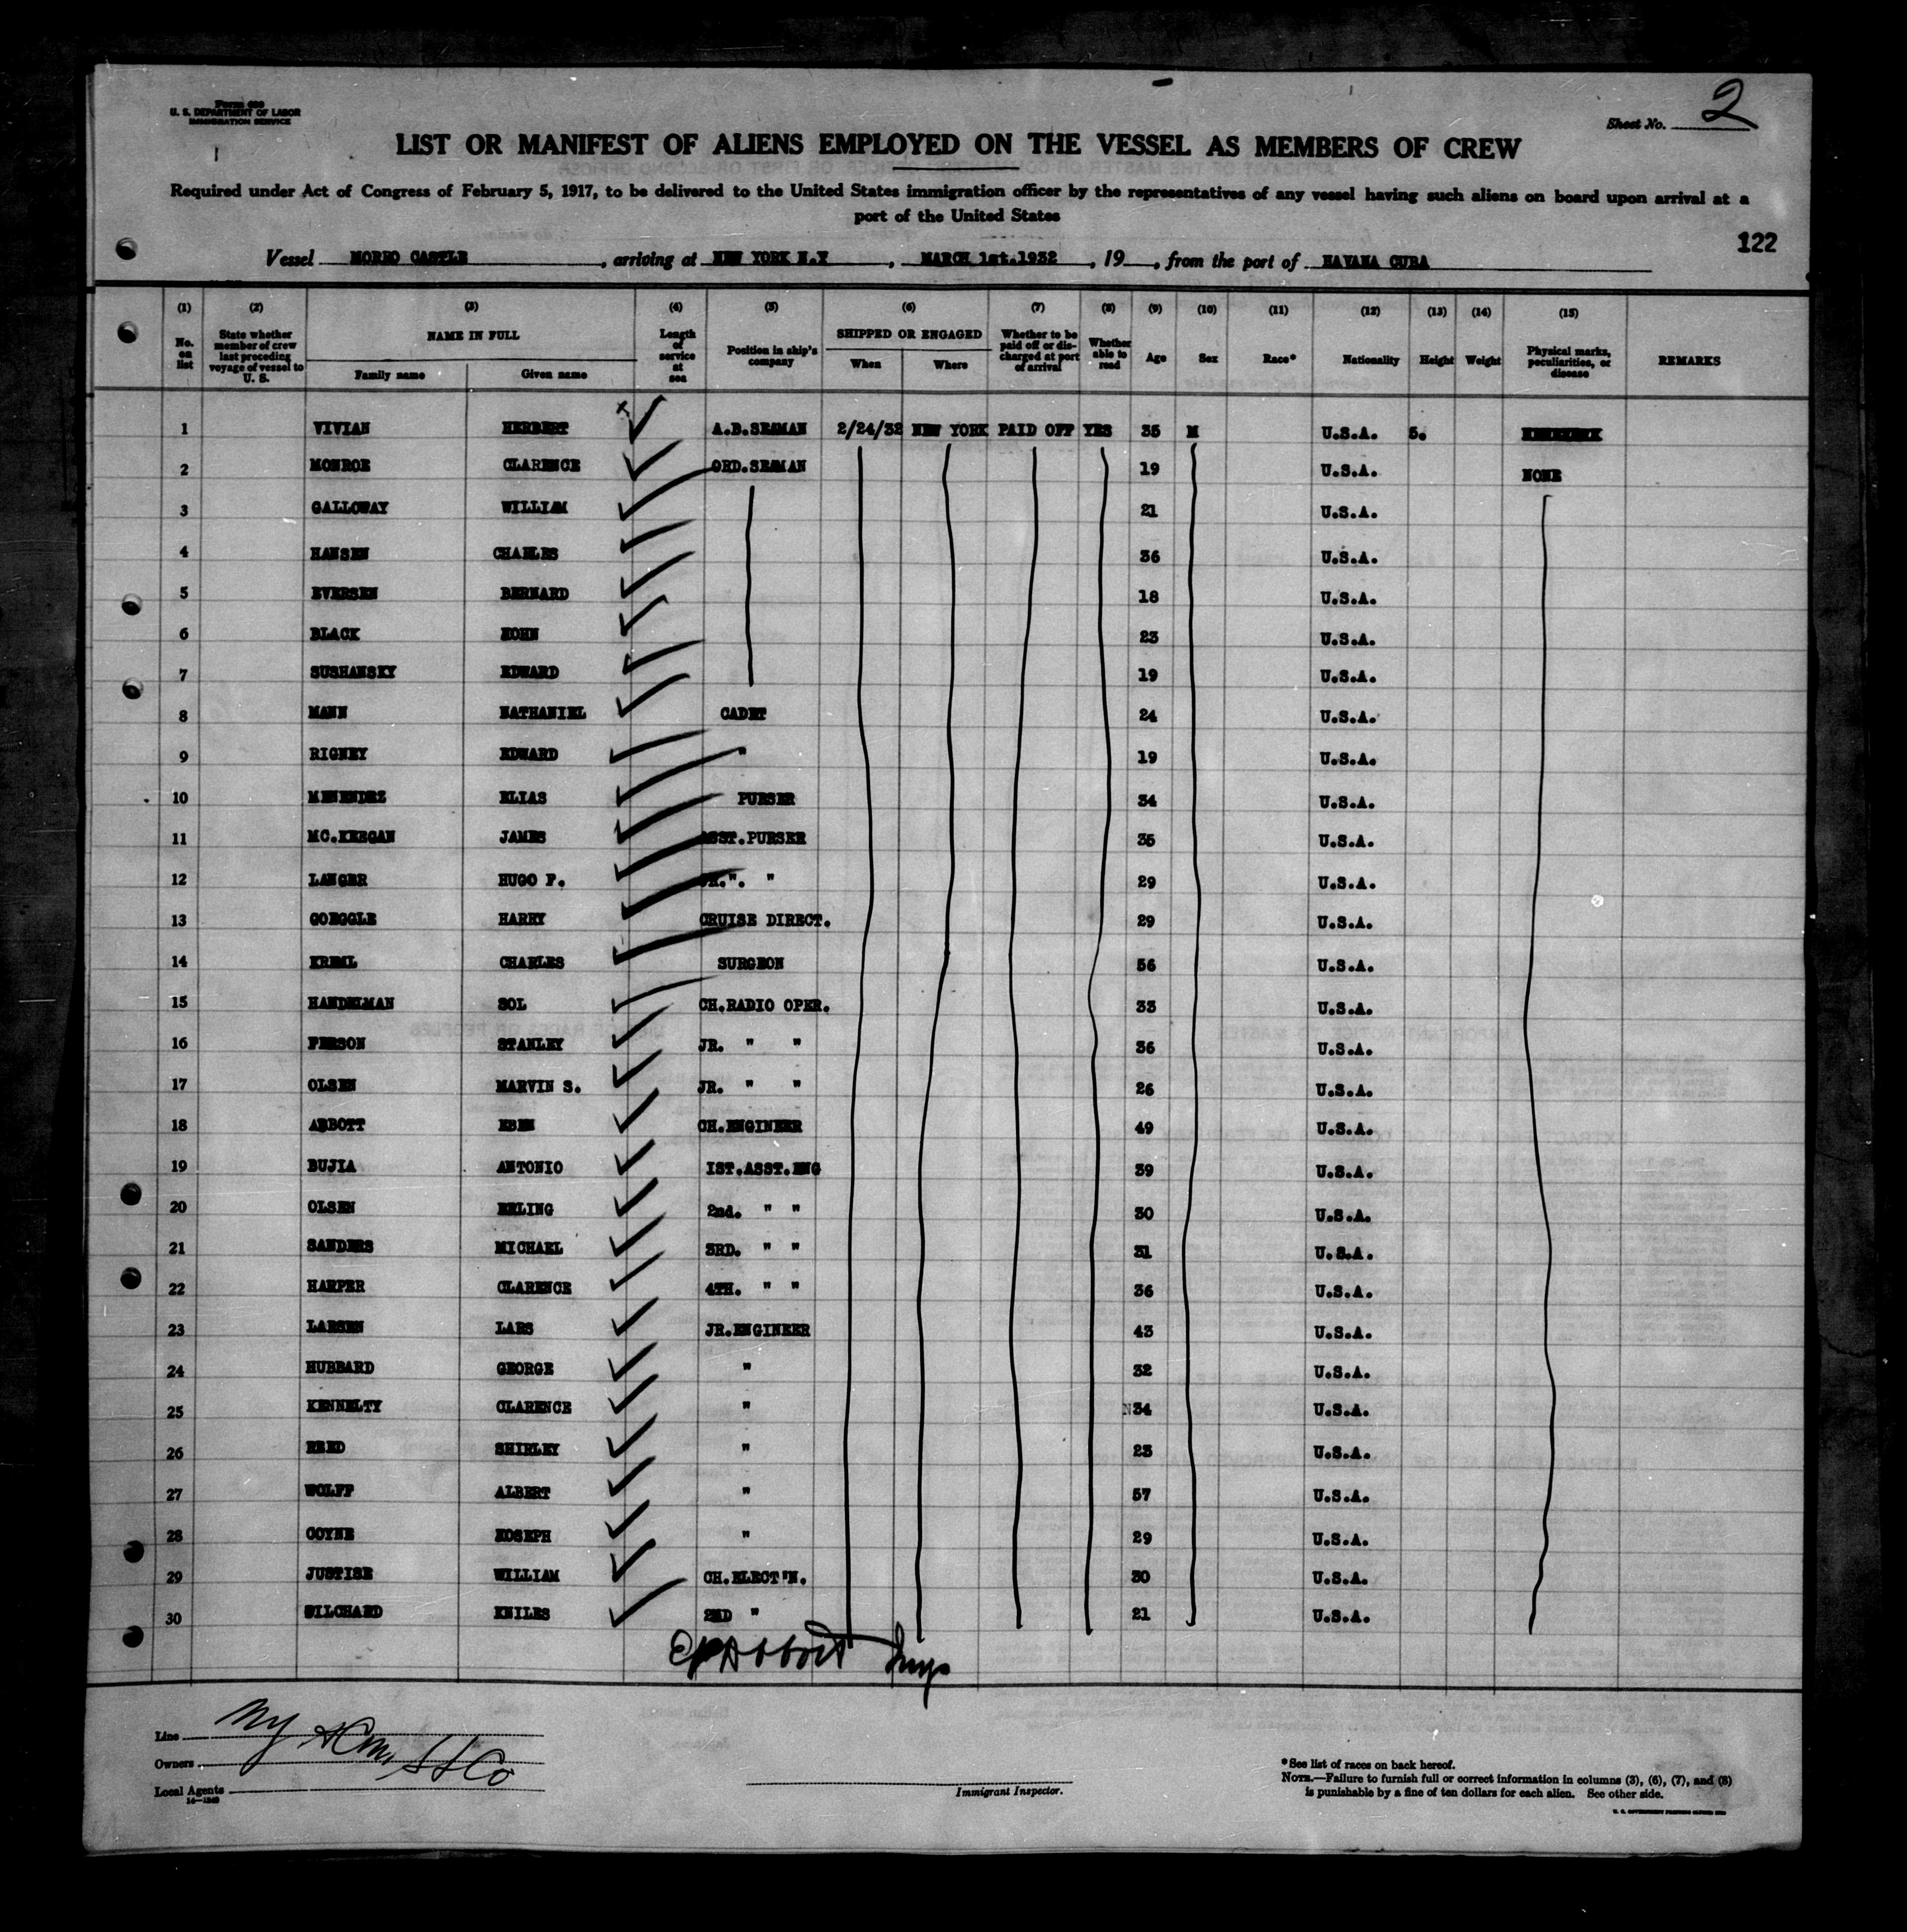 Form 689
U. S. DEPARTMENT OF LABOR
IMMIGRATION SERVICE
Sheet No. 2
LIST OR MANIFEST OF ALIENS EMPLOYED ON THE VESSEL AS MEMBERS OF CREW
Required under Act of Congress of February 5, 1917, to be delivered to the United States immigration officer by the representatives of any vessel having such aliens on board upon arrival at a
port of the United States
122
Vessel MORRO CASTLE, arriving at NEW YORK N.Y, MARCH 1st.1932, 19, from the port of HAVANA CUBA
(1) (2) (3) (4) (5) (6) (7) (8) (9) (10) (11) (12) (13) (14) (15)
No. on list State whether member of crew last preceding voyage of vessel to U. S. NAME IN FULL Family name Given name Length of service at sea Position in ship's company SHIPPED OR ENGAGED When Where Whether to be paid off or discharged at port of arrival Whether able to read Age Sex Race* Nationality Height Weight Physical marks, peculiarities, or disease REMARKS
1 VIVIAN HERBERT A.B.SEAMAN 2/24/32 NEW YORK PAID OFF YES 35 M U.S.A. 5.
2 MONROE CLARENCE ORD.SEAMAN 19 U.S.A. NONE
3 GALLOWAY WILLIAM 21 U.S.A.
4 HANSEN CHARLES 36 U.S.A.
5 EVERSEN BERNARD 18 U.S.A.
6 BLACK HOHN 23 U.S.A.
7 SUSHANSKY EDWARD 19 U.S.A.
8 MANN NATHANIEL CADET 24 U.S.A.
9 RIGNEY EDWARD " 19 U.S.A.
10 MENENDEZ ELIAS PURSER 34 U.S.A.
11 MC.KEEGAN JAMES ASST.PURSER 35 U.S.A.
12 LANGER HUGO F. JR.". " 29 U.S.A.
13 GOEGGLE HARRY CRUISE DIRECT. 29 U.S.A.
14 KREML CHARLES SURGEON 56 U.S.A.
15 HANDELMAN SOL CH.RADIO OPER. 33 U.S.A.
16 FERSON STANLEY JR. " " 36 U.S.A.
17 OLSEN MARVIN S. JR. " " 26 U.S.A.
18 ABBOTT EBEN CH.ENGINEER 49 U.S.A.
19 BUJIA ANTONIO IST.ASST.ENG 39 U.S.A.
20 OLSEN ERLING 2nd. " " 30 U.S.A.
21 SANDERS MICHAEL 3RD. " " 31 U.S.A.
22 HARPER CLARENCE 4TH. " " 36 U.S.A.
23 LARSEN LARS JR.ENGINEER 43 U.S.A.
24 HUBBARD GEORGE " 32 U.S.A.
25 KENNELTY CLARENCE " 34 U.S.A.
26 REED SHIRLEY " 23 U.S.A.
27 WOLFF ALBERT " 57 U.S.A.
28 COYNE HOSEPH " 29 U.S.A.
29 JUSTISE WILLIAM CH.ELECT'N. 30 U.S.A.
30 KNILES 2ND " 21 U.S.A.
Abbott
Line NY & Cu
Owners SS Co
Local Agents
Immigrant Inspector.
*See list of races on back hereof.
NOTE.—Failure to furnish full or correct information in columns (3), (6), (7), and (8)
is punishable by a fine of ten dollars for each alien. See other side.